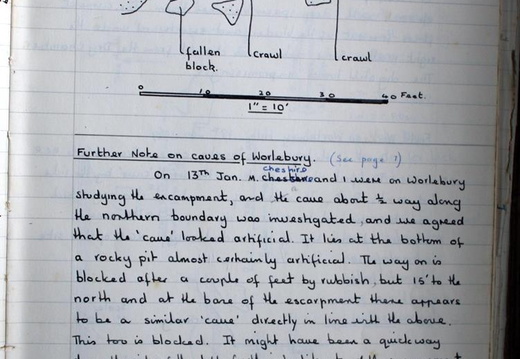 fallen block.
crawl
crawl
0 10 20 30 40 Feet.
1" = 10'
Further Note on caves of Worlebury. (see page 1)
On 13th Jan. M. Cheshire and I were on Worlebury
studying the encampment, and the cave about ½ way along
the northern boundary was investigated, and we agreed
that the 'cave' looked artificial. It lies at the bottom of
a rocky pit almost certainly artificial. The way on is
blocked after a couple of feet by rubbish, but 15' to the
north and at the base of the escarpment there appears
to be a similar 'cave' directly in line with the above.
This too is blocked. It might have been a quick way